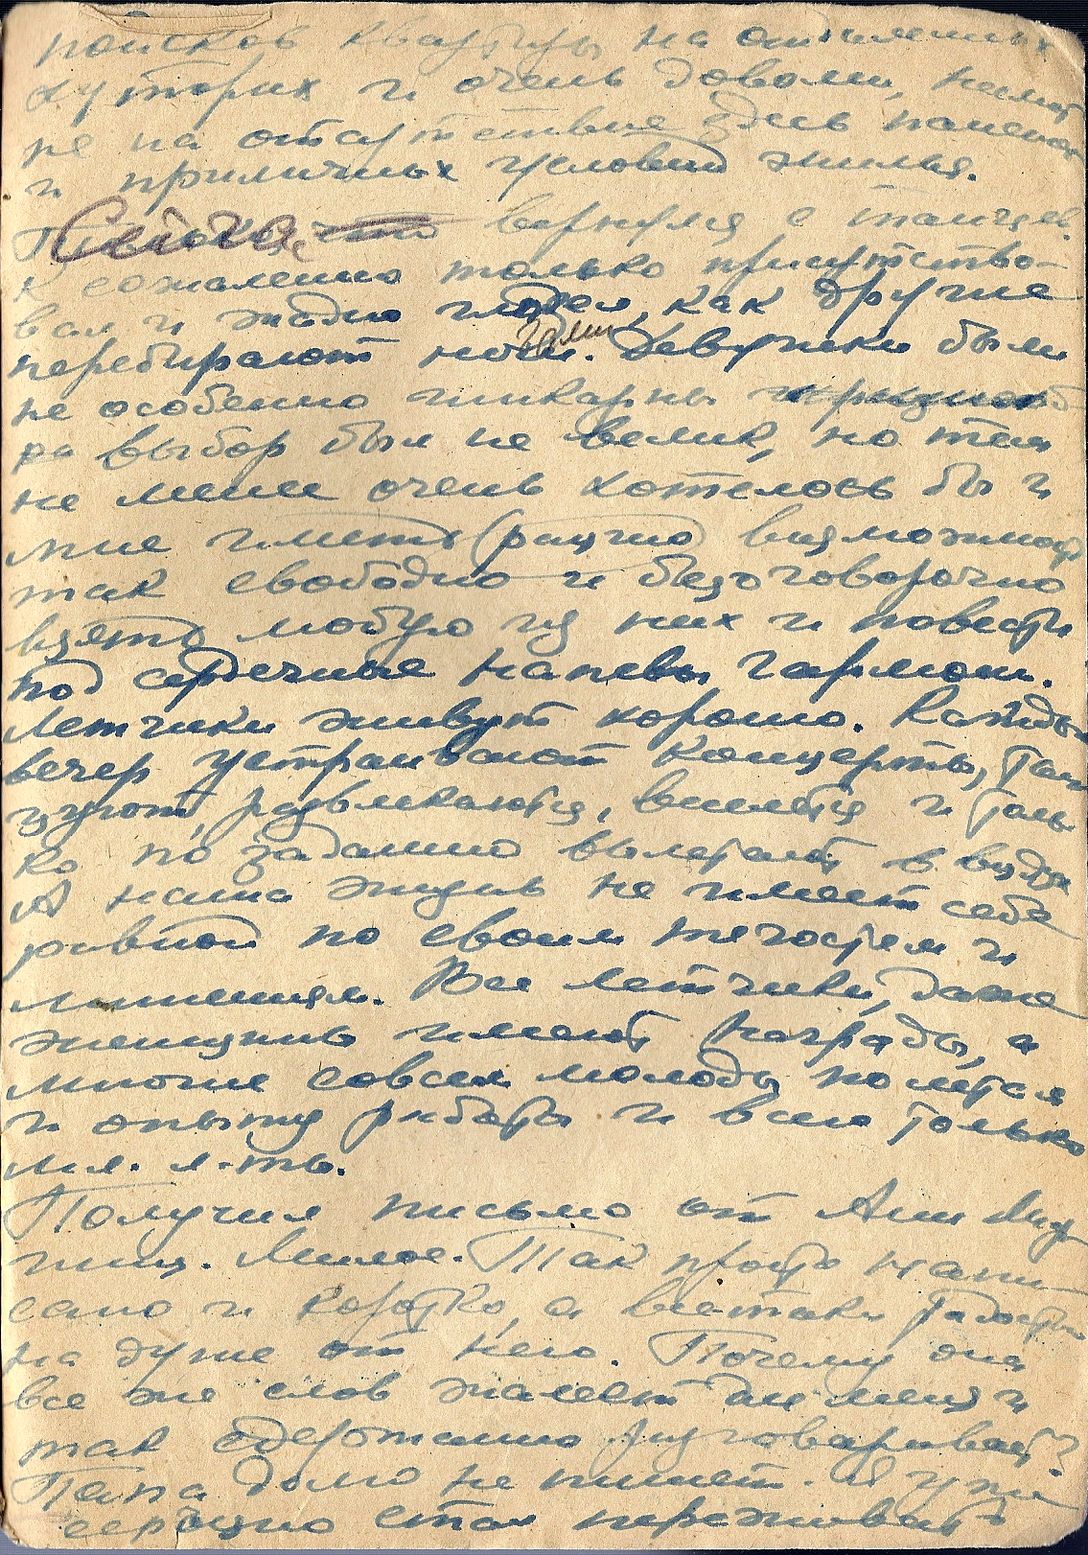 поисков квартиры на отдаленных
хуторах и очень доволен, несмот
ря на отсутствие здесь
и приличных условий жилья.
Сейчас вернулся с танцев.
к сожалению только присутство-
вал и жадно глядел, как другие
перебирают ногами. Девушки были
не особенно шикарны
да выбор был не велик, но тем
не менее очень хотелось бы и
мне иметь (рацию) возможность
так свободно и безоговорочно
взять любую из них и повести
под сердечные напевы гармони.
Летчики живут хорошо. Каждый
вечер устраивают концерты, тан
цуют, развлекаются, веселятся и толь
ко по заданию вылетают в воздух
А наша жизнь не имеет себе
равной по своим тягостям и
лишениям. Все летчики, даже
женщины имеют награды, а
многие совсем молоды по летам
и опыту работы и всего только
мл. л-ты.
Получил письмо от Ани
Милое. Так просто напи-
сано и коротко, а всетаки радостно
на душе от него. Почему она
все же слов жалеет для меня и
так сдержанно разговаривает?
Папа долго не пишет. Я уже
серьезно стал переживать